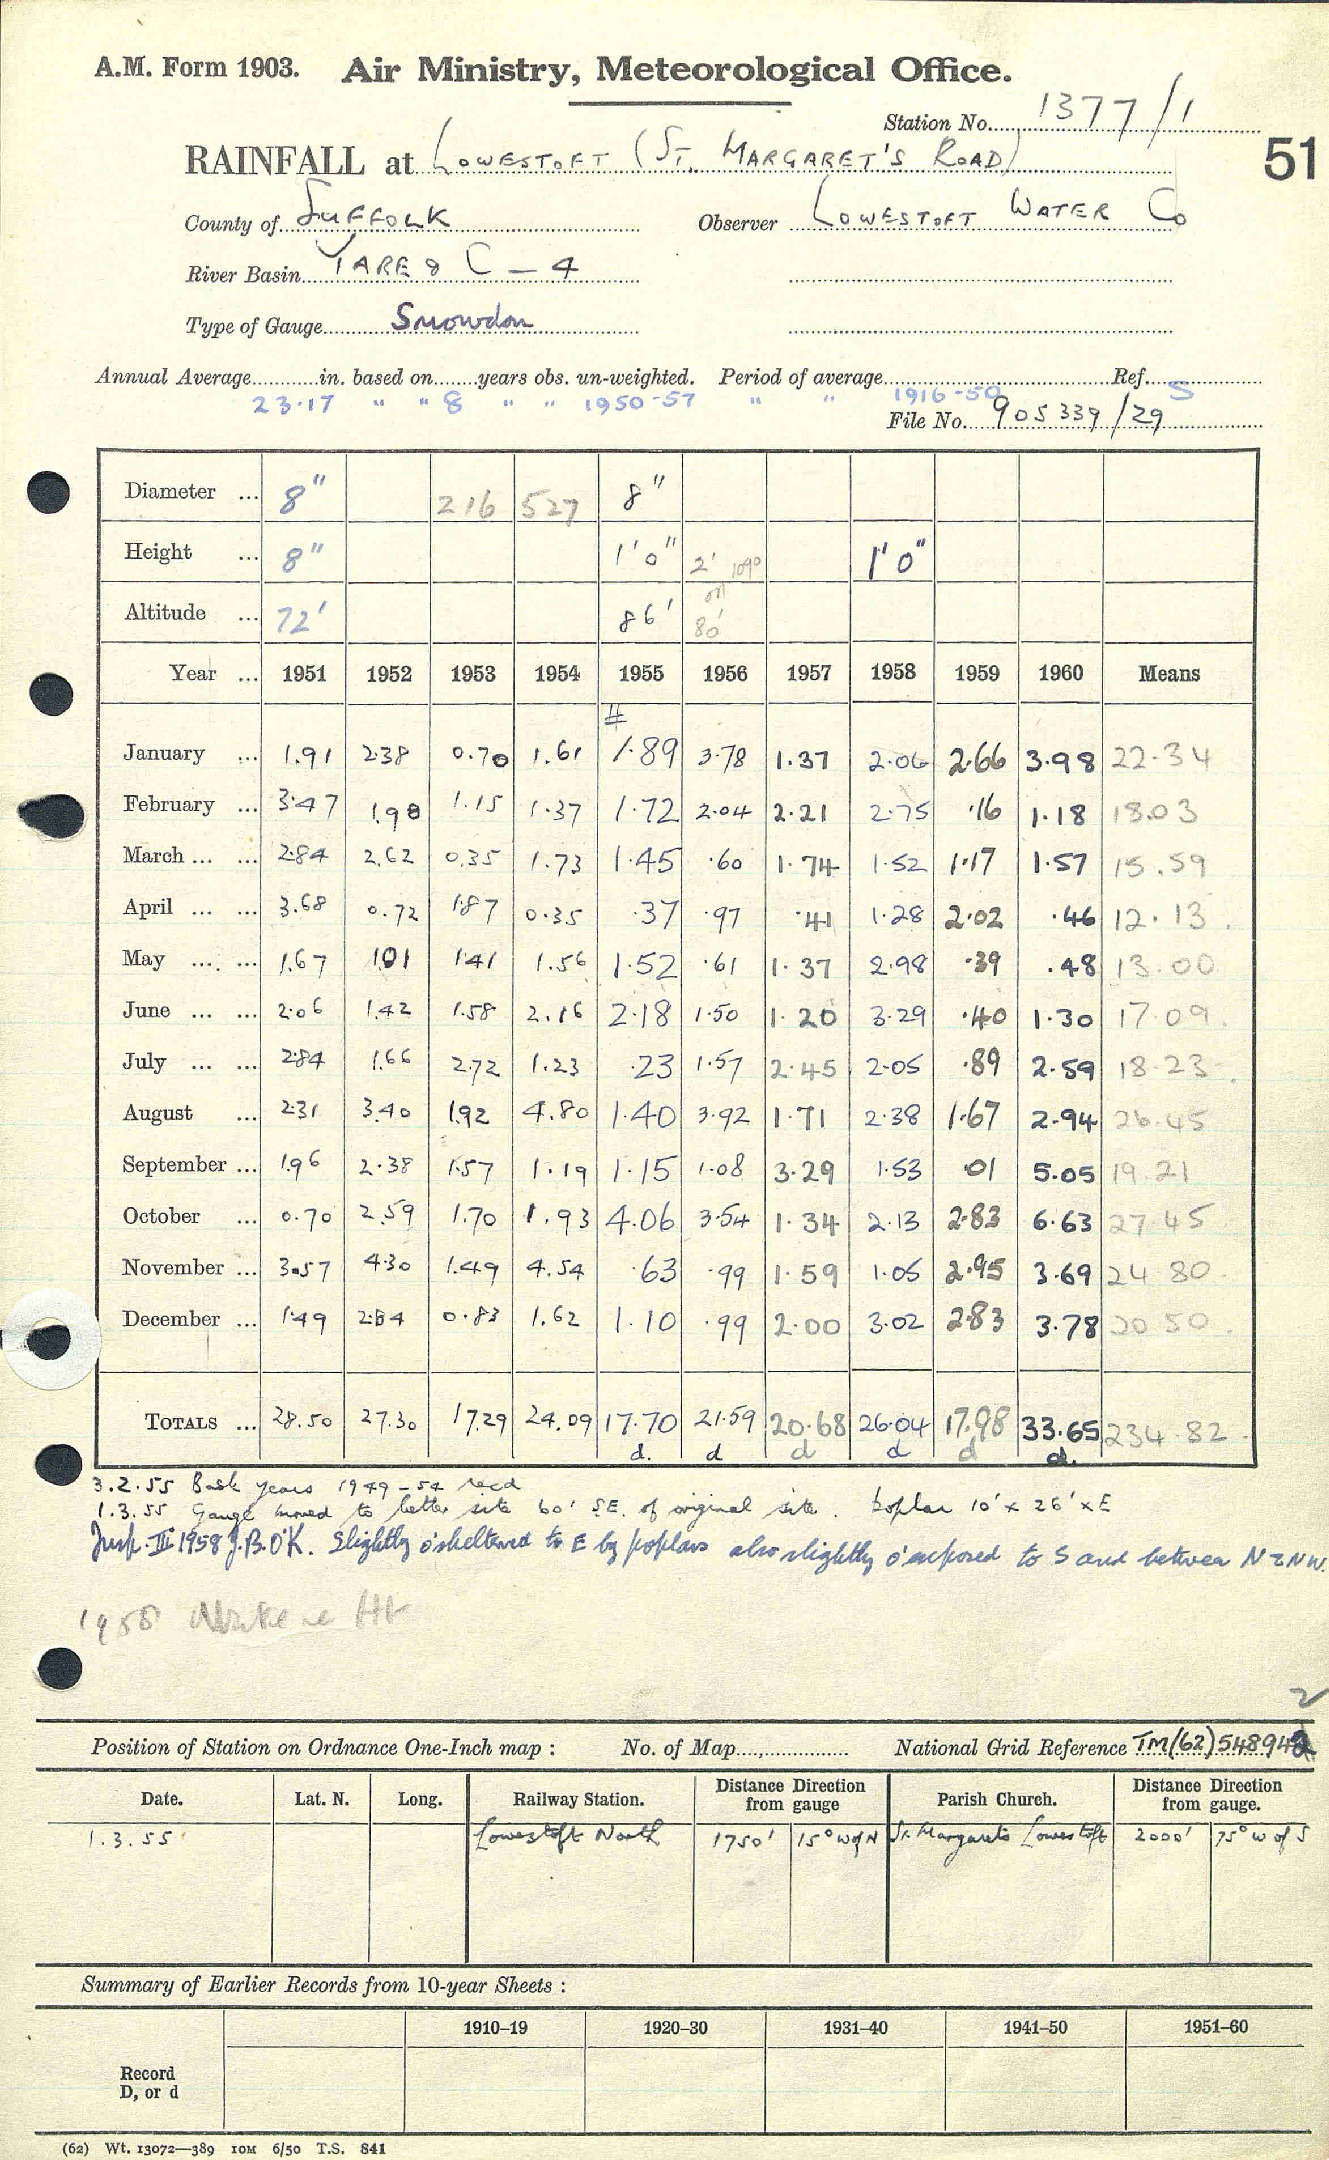 A.M. Form 1903. Air Ministry, Meteorological Office.
Station No. 1377/1
RAINFALL at LOWESTOFT (ST. MARGARET'S ROAD)
51
County of SUFFOLK Observer LOWESTOFT WATER Co
River Basin YARE & C — 4
Type of Gauge Snowdon
Annual Average in. based on years obs. un-weighted. Period of average Ref. S
23.17 " " 8 " " 1950-57 " " 1916-50
File No. 905339/29
Diameter ... 8" 216 527 8"
Height ... 8" 1'0" 2' 1'0"
Altitude ... 72' 86' 80'
Year ... 1951 1952 1953 1954 1955 1956 1957 1958 1959 1960 Means
January ... 1.91 2.38 0.70 1.61 1.89 3.78 1.37 2.06 2.66 3.98 22.34
February ... 3.47 1.98 1.15 1.37 1.72 2.04 2.21 2.75 .16 1.18 18.03
March ... ... 2.84 2.62 0.35 1.73 1.45 .60 1.74 1.52 1.17 1.57 15.59
April ... ... 3.68 0.72 1.87 0.35 .37 .97 .41 1.28 2.02 .46 12.13
May ... ... 1.67 1.01 1.41 1.56 1.52 .61 1.37 2.98 .39 .48 13.00
June ... ... 2.06 1.42 1.58 2.16 2.18 1.50 1.20 3.29 .40 1.30 17.09
July ... ... 2.84 1.66 2.72 1.23 .23 1.57 2.45 2.05 .89 2.59 18.23
August ... 2.31 3.40 1.92 4.80 1.40 3.92 1.71 2.38 1.67 2.94 26.45
September ... 1.96 2.38 1.57 1.19 1.15 1.08 3.29 1.53 .01 5.05 19.21
October ... 0.70 2.59 1.70 1.93 4.06 3.54 1.34 2.13 2.83 6.63 27.45
November ... 3.57 4.30 1.49 4.54 .63 .99 1.59 1.05 2.95 3.69 24.80
December ... 1.49 2.84 0.83 1.62 1.10 .99 2.00 3.02 2.83 3.78 20.50
TOTALS ... 28.50 27.30 17.29 24.09 17.70 21.59 20.68 26.04 17.98 33.65 234.82
d. d d d d d.
3.2.55 Back years 1949-54 recd
1.3.55 Gauge moved to better site 60' SE. of original site. Poplar 10' x 26' x E
Insp. III 1958 J.B.O'K. Slightly o'sheltered to E by poplars also slightly o'exposed to S and between N & NW.
1958
Position of Station on Ordnance One-Inch map : No. of Map National Grid Reference TM(62)54894
2
Date. Lat. N. Long. Railway Station. Distance Direction from gauge Parish Church. Distance Direction from gauge.
1.3.55 Lowestoft North 1750' 15° W of N St. Margarets Lowestoft 2000' 75° W of S
Summary of Earlier Records from 10-year Sheets :
1910–19 1920–30 1931–40 1941–50 1951–60
Record
D, or d
(62) Wt. 13072—389 10M 6/50 T.S. 841